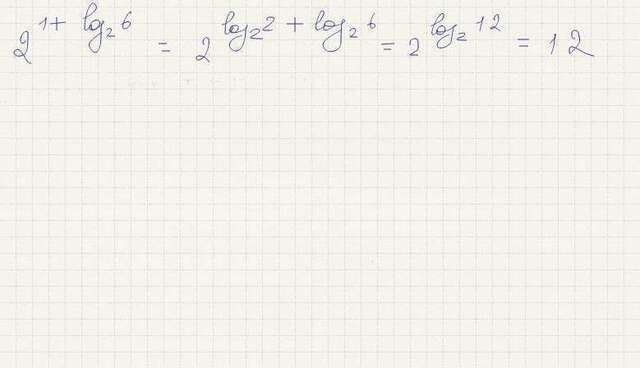 2^{1+ log_2 6} = 2^{log_2 2 + log_2 6} = 2^{log_2 12} = 12